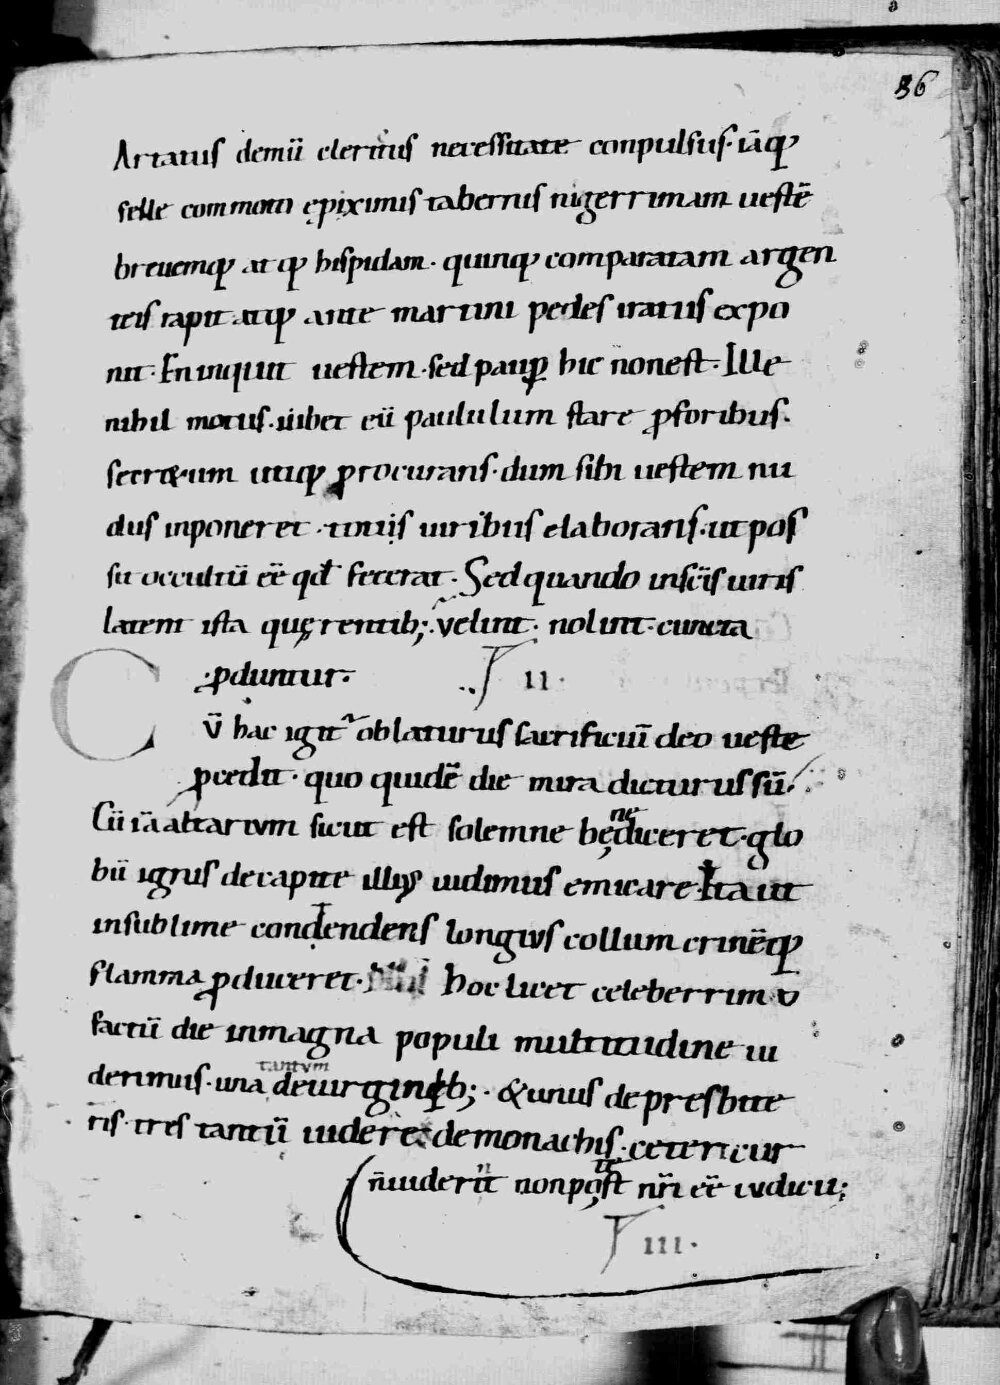 36
Artatus demū clericus necessitate conpulsus· iāq;
felle commoto ępiximis tabernis nigerrimam uestē
breuemq; atq; hispidam· quinq; comparatam argen
teis rapit atq; ante martini pedes iratus expo
nit· En inquit uestem· sed paup̱ hic non est· Ille
nihil motus· iubet eū paululum stare p̱ foribus·
secretum utiq; procurans· dum sibi uestem nu
dus inponeret· totis uiribus elaborans· ut pos
sit occultū eē qđ fecerat· Sed quando in sc̄is uiris
latent ista quęrentib;· velint· nolint· cuncta
p̱duntur· II·
CV̄ hac igit̄ oblaturus sacrificiū deo ueste
p̱cedit· quo quidē die mira dicturus sū·
Cū iā altarium sicut est solemne bęnediceret· glo
bū ignis de capite illiꝰ uidimus emicare· Ita ut
in sublime contendens longius collum crinēq;
flamma p̱duceret· Hoc licet celeberrimo
factū die in magna populi multitudine ui
derimus· una tantvm de uirginib;· & unus de presbite
ris· tres tantū uidere de monachis· ceteri cur
n̄ uiderint non potest nr̄i eē iudicii;
III·